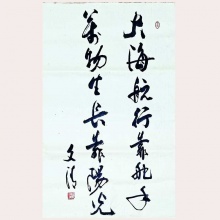 大海航行靠舵手
萬物生長靠陽光
文清